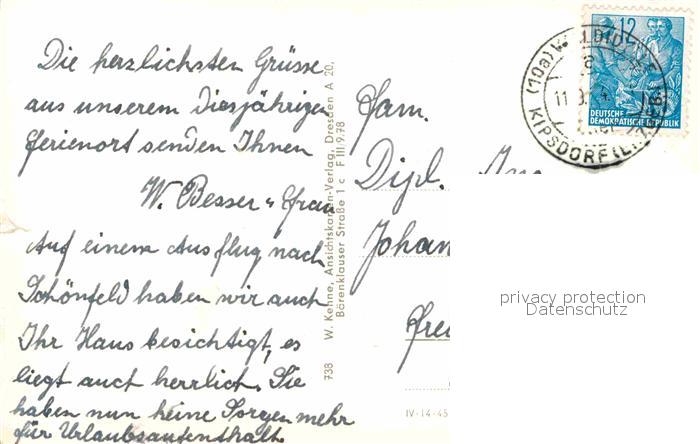 Die herzlichsten Grüsse
aus unserem diesjährigen
Ferienort senden Ihnen
W. Besser u. Frau
Auf einem Ausflug nach
Schönfeld haben wir auch
Ihr Haus besichtigt, es
liegt auch herrlich. Sie
haben nun keine Sorgen mehr
für Urlaubsaufenthalt
738 W. Kehne, Ansichtskarten-Verlag, Dresden A 20,
Börenklauser Straße 1 c F III.9.78
Fam.
Dipl.
Johan
IV-14-45
12
DEUTSCHE
DEMOKRATISCHE REPUBLIK
(10a)
KIPSDORF
privacy protection
Datenschutz